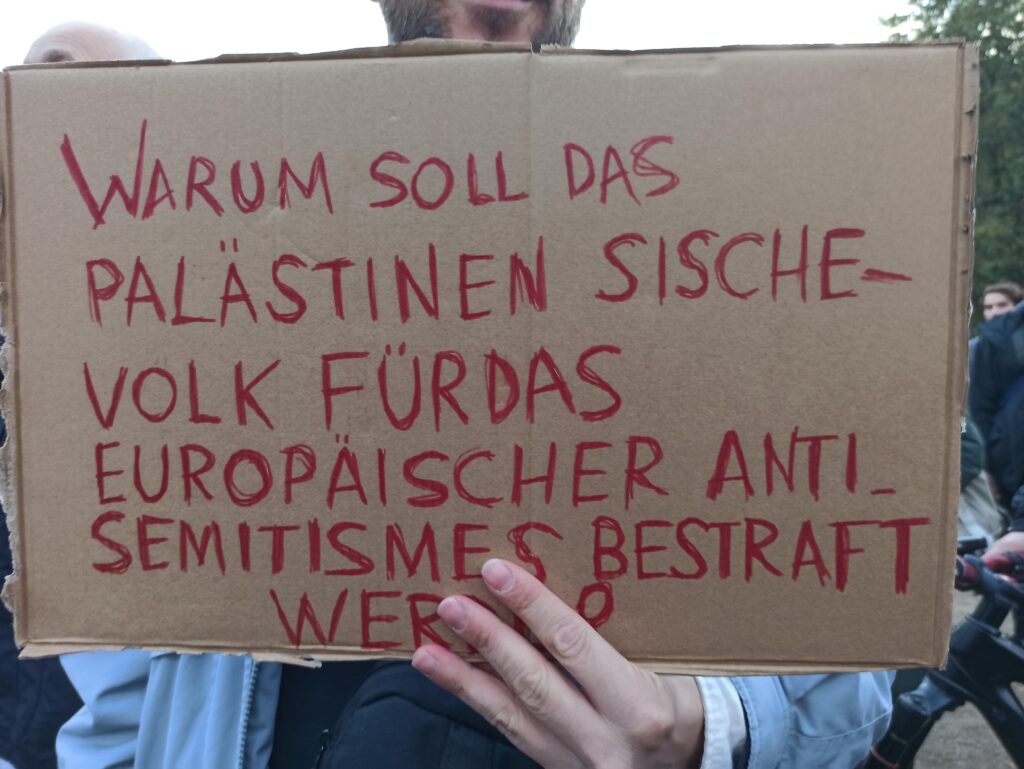 WARUM SOLL DAS
PALÄSTINEN SISCHE-
VOLK FÜR DAS
EUROPÄISCHER ANTI_
SEMITISMES BESTRAFT
?